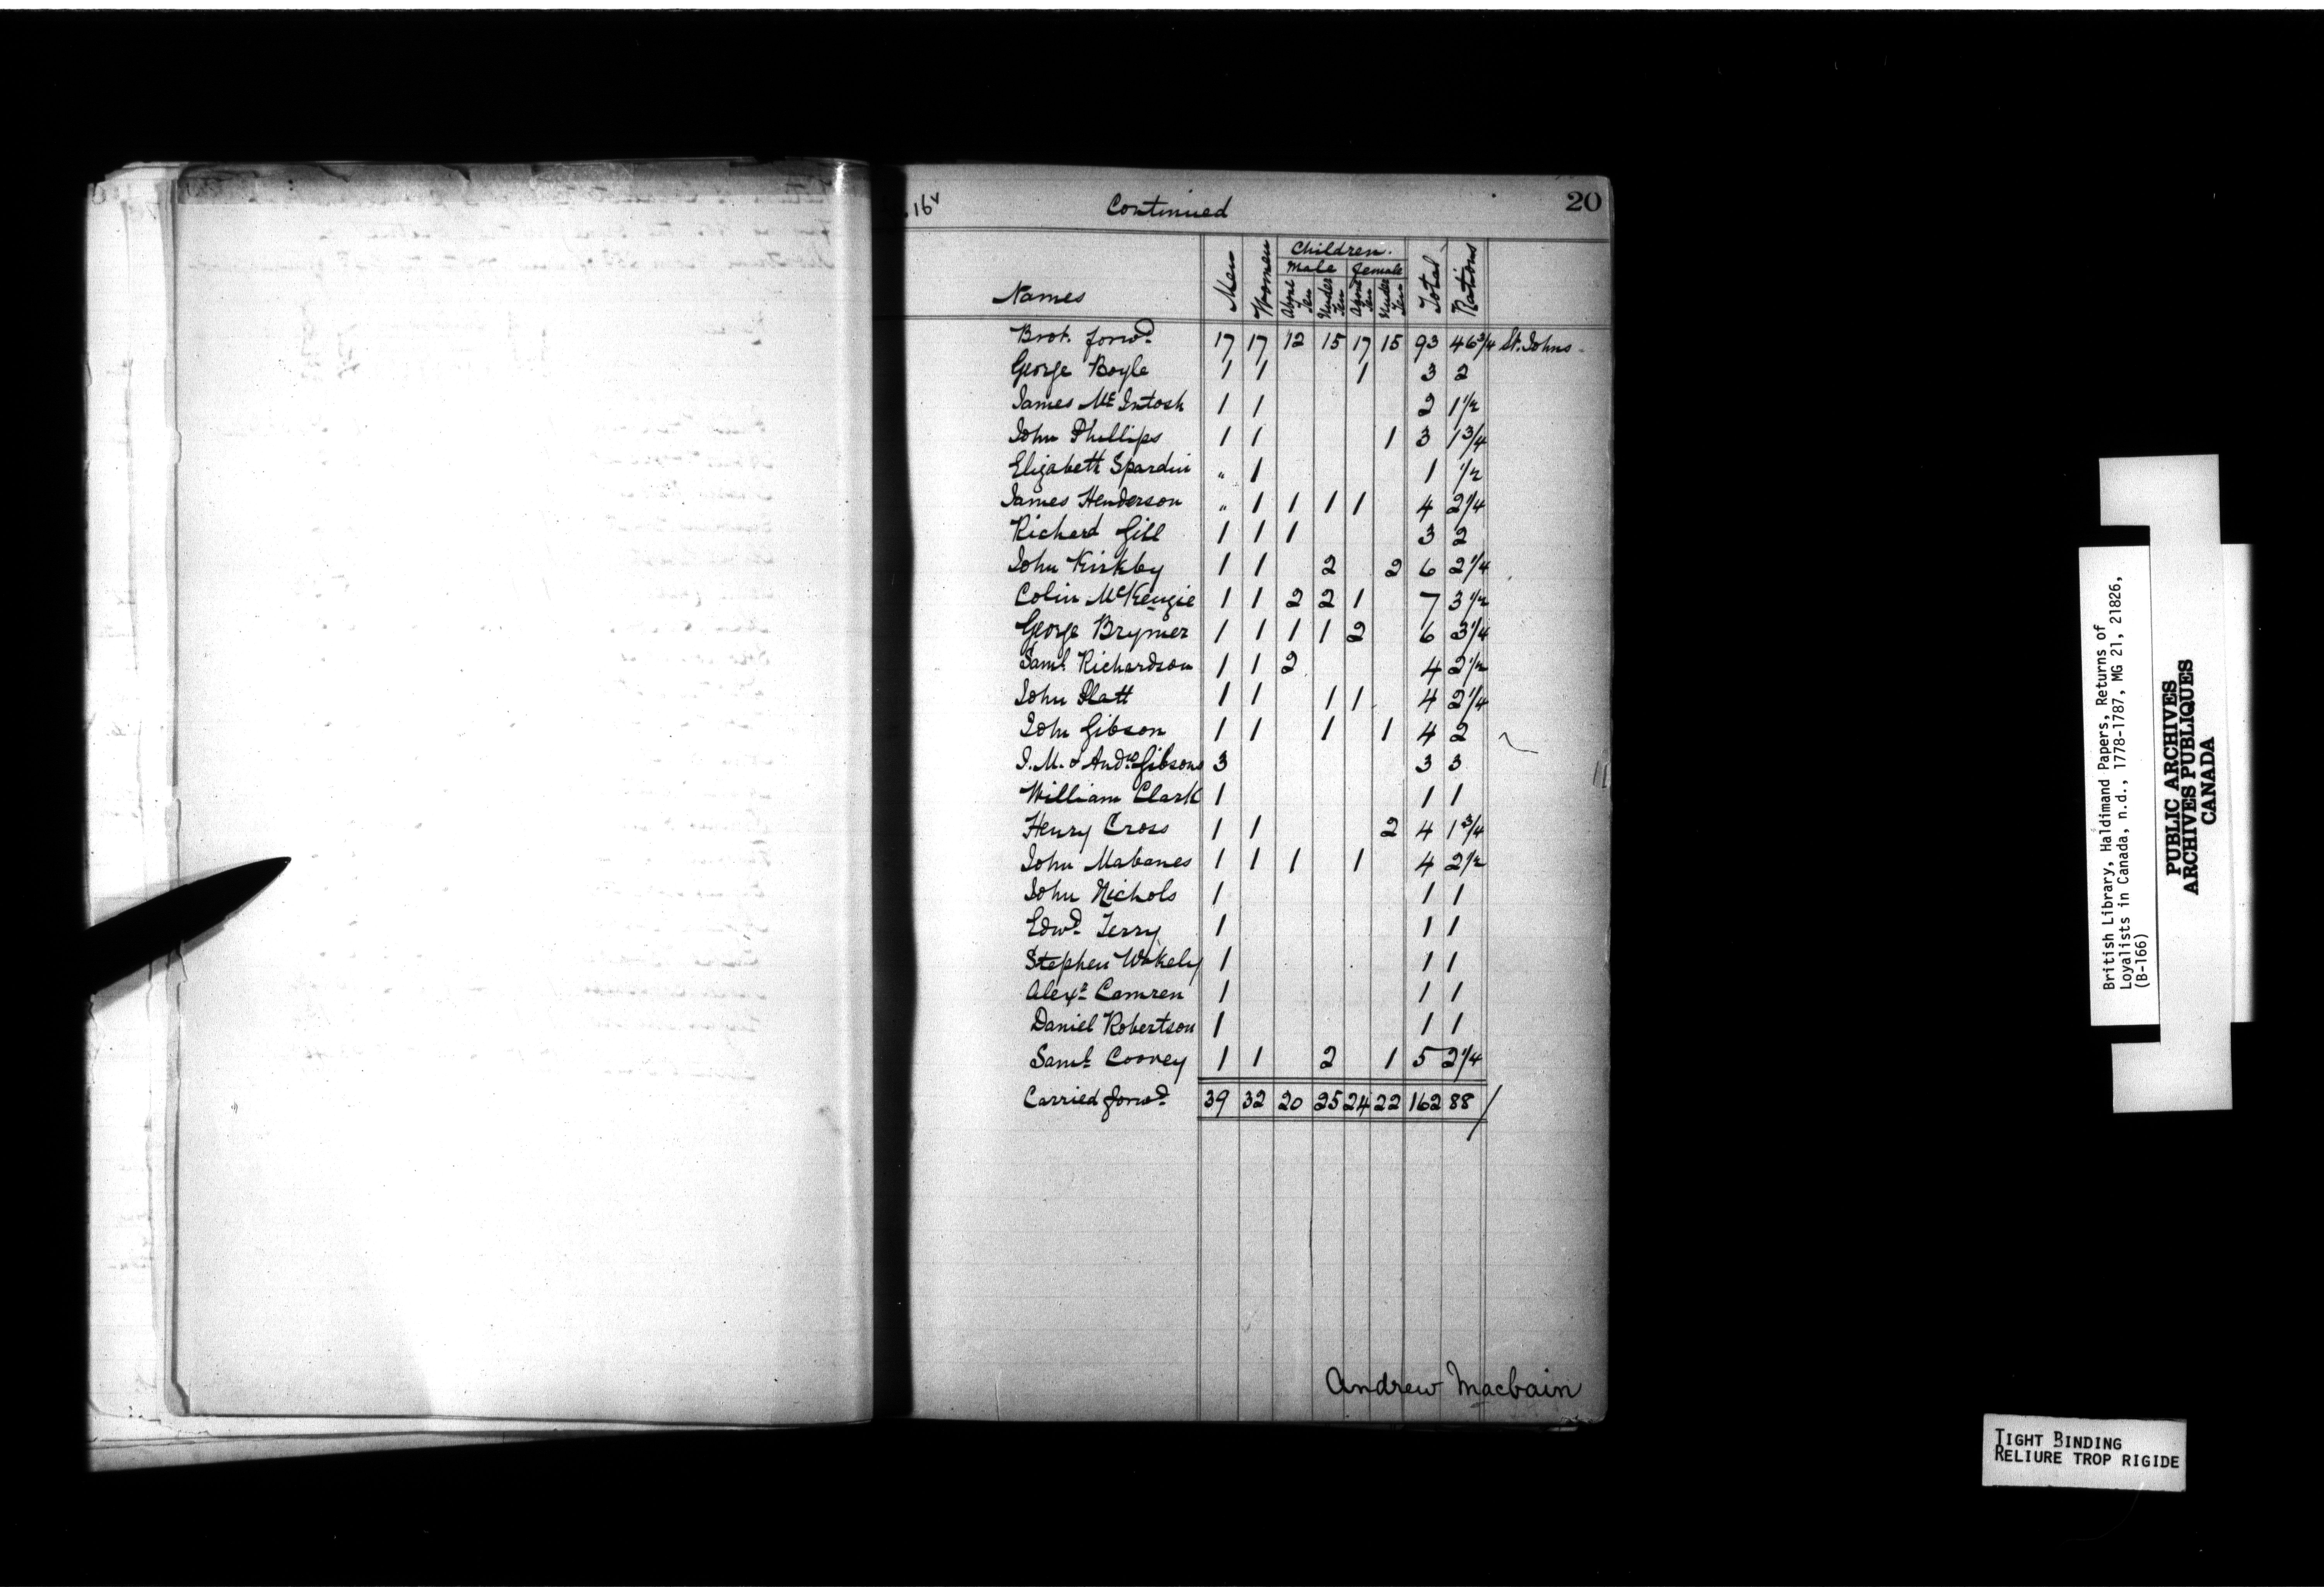 .16v Continued 20
Names Men Women Children. Male Above Ten Under Ten Female Above Ten Under Ten Total Rations
Brot. forwd. 17 17 12 15 17 15 93 46 3/4 St. Johns
George Boyle 1 1 1 3 2
James Mc Intosh 1 1 2 1 1/2
John Phillips 1 1 1 3 1 3/4
Elizabeth Spardin " 1 1 1/2
James Henderson " 1 1 1 1 4 2 1/4
Richard Gill 1 1 1 3 2
John Kirkby 1 1 2 2 6 2 1/4
Colin McKenzie 1 1 2 2 1 7 3 1/2
George Brymer 1 1 1 1 2 6 3 1/4
Saml. Richardson 1 1 2 4 2 1/2
John Platt 1 1 1 1 4 2 1/4
John Gibson 1 1 1 1 4 2
J. M. & Andw Gibsons 3 3 3
William Clark 1 1 1
Henry Cross 1 1 2 4 1 3/4
John Mabanes 1 1 1 1 4 2 1/2
John Nichols 1 1 1
Edwd. Terry 1 1 1
Stephen Wakely 1 1 1
Alexr. Camren 1 1 1
Daniel Robertson 1 1 1
Saml. Coovey 1 1 2 1 5 2 1/4
Carried forwd. 39 32 20 25 24 22 162 88
Andrew Macbain
British Library, Haldimand Papers, Returns of
Loyalists in Canada, n.d., 1778-1787, MG 21, 21826,
(B-166)
PUBLIC ARCHIVES
ARCHIVES PUBLIQUES
CANADA
TIGHT BINDING
RELIURE TROP RIGIDE